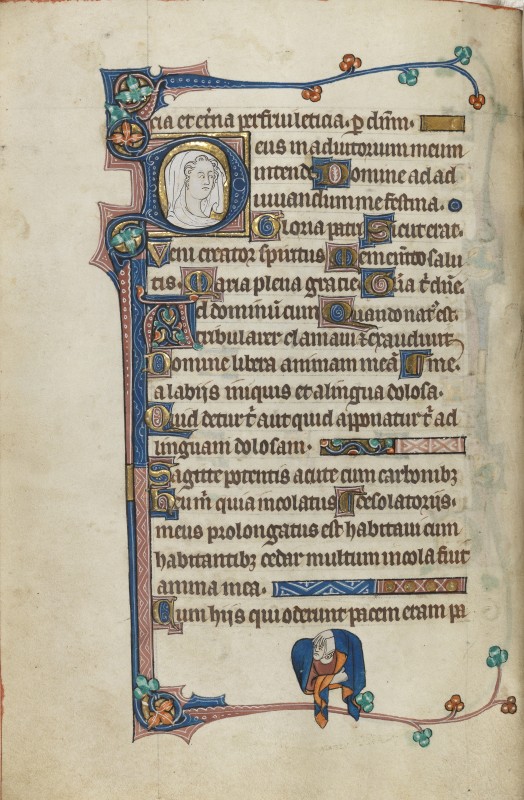 cia et et̄na perfrui leticia. ꝑ dn̄m.
Deus in adiutorium meum
intende Domine ad ad
iuuandum me festina.
Gloria patri Sicut erat.
Veni creator spiritus Memento salu
tis. Maria plena gracie Gl̄ia t̄ dn̄e.
Ad dominum cum Quando nat᷒ est.
tribularer clamaui ⁊ exaudiuit
Domine libera animam meā me.
a labijs iniquis et a lingua dolosa.
Quid detur t̄ aut quid apponatur t̄ ad
linguam dolosam.
Sagitte potentis acute cum carbonibꝫ
Heu m̄ quia incolatus desolatorijs.
meus prolongatus est habitaui cum
habitantibꝫ cedar multum incola fuit
anima mea.
Cum hijs qui oderunt pacem eram pa